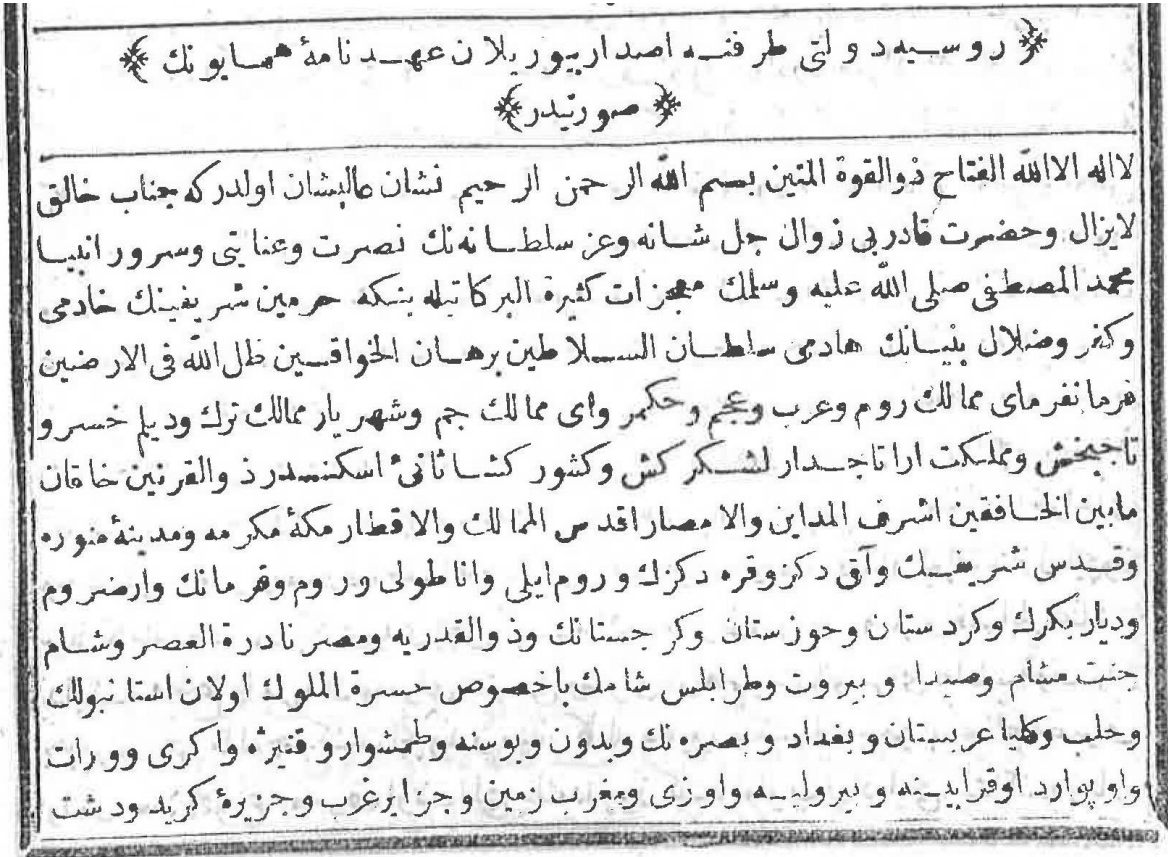 ﴿ روسیه دولتی طرفنه اصدار بیوریلان عهدنامهٔ همایونك ﴾
﴿ صورتیدر ﴾
لااله الاالله الفتاح ذوالقوة المتین بسم الله الرحمن الرحیم نشان عالیشان اولدركه جناب خالق
لایزال وحضرت قادر بی زوال جل شانه وعز سلطانه نك نصرت وعنایتی وسرور انبیا
محمد المصطفی صلی الله علیه وسلمك معجزات كثیرة البركاتیله بنكه حرمین شریفینك خادمی
وكفر وضلال بنیانك هادمی سلطان السلاطین برهان الخواقین ظل الله فی الارضین
فرمانفرمای ممالك روم وعرب وعجم وحكمر وای ممالك جم وشهریار ممالك ترك ودیلم خسرو
تاجبخش ومملكت ارا تاجدار لشكركش وكشور كشا ثانیٔ اسكندر ذوالقرنین خاقان
مابین الخافقین اشرف المداین والامصار اقدس الممالك والاقطار مكهٔ مكرمه ومدینهٔ منوره
وقدس شریفك وآق دكز وقره دكزك وروم ایلی واناطولی وروم وقرمانك وارضروم
ودیار بكرك وكردستان وحوزستان وكرجستانك وذوالقدریه ومصر نادرة العصر وشام
جنت مشام وصیدا وبیروت وطرابلس شامك باخصوص حسرة الملوك اولان استانبولك
وحلب وكلیا عربستان وبغداد وبصره نك وبدون وبوسنه وطمشوار وقنیژه واكری وورات
واویوارد اوقراینه وبیرولیه واوزی ومغرب زمین وجزایر غرب وجزیرهٔ كرید ودشت